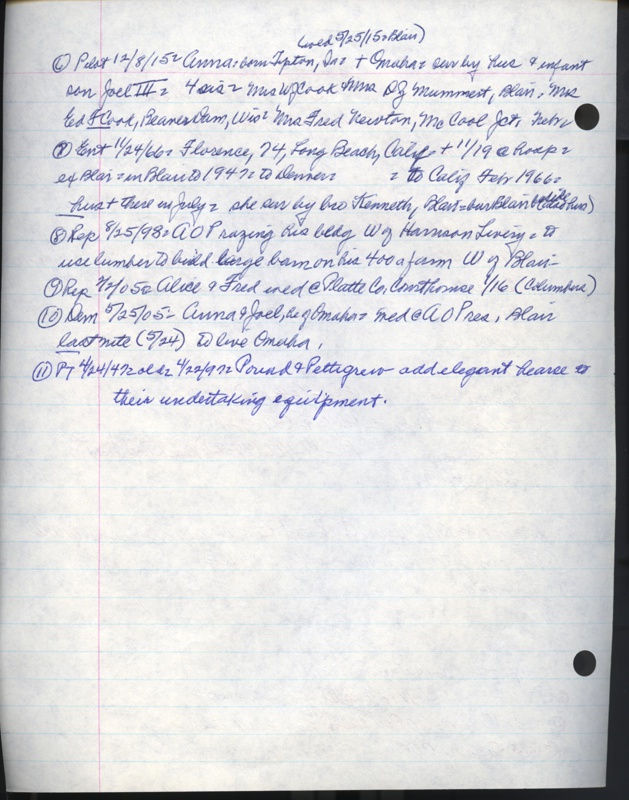 (wed 5/25/15=Blair)
⑥ Pilot 12/8/15= Anna: born Tipton, Ia= + Omaha= surv by hus & infant
son Joel III= 4 sis= Mrs WJ Cook Mrs DG Mummert, Blair, Mrs
Ed F Cook, Beaver Dam, Wis= Mrs Fred Newton, McCool Jct, Nebr
⑦ Ent 11/24/66= Florence, 74, Long Beach, Calif + 11/19 @ hosp=
ex Blair= in Blair to 1947= to Denver= = to Calif Feb 1966=
hus + there in July= she sur by bro Kenneth, Blair= bur Blair
⑧ Rep 8/25/98= A O P razing his bldg W of Harrison Livery= to
use lumber to build large barn on his 400 a farm W of Blair-
⑨ Rep 2/2/05= Alice & Fred wed @ Platte Co, Courthouse 1/16 (Columbus)
⑩ Dem 5/25/05- Anna & Joel, he of Omaha= wed @ A O Pres, Blair
last nite (5/24) to live Omaha.
⑪ PT 4/24/47= old= 4/22/97= Pound & Pettigrew add elegant hearse to
their undertaking equipment.